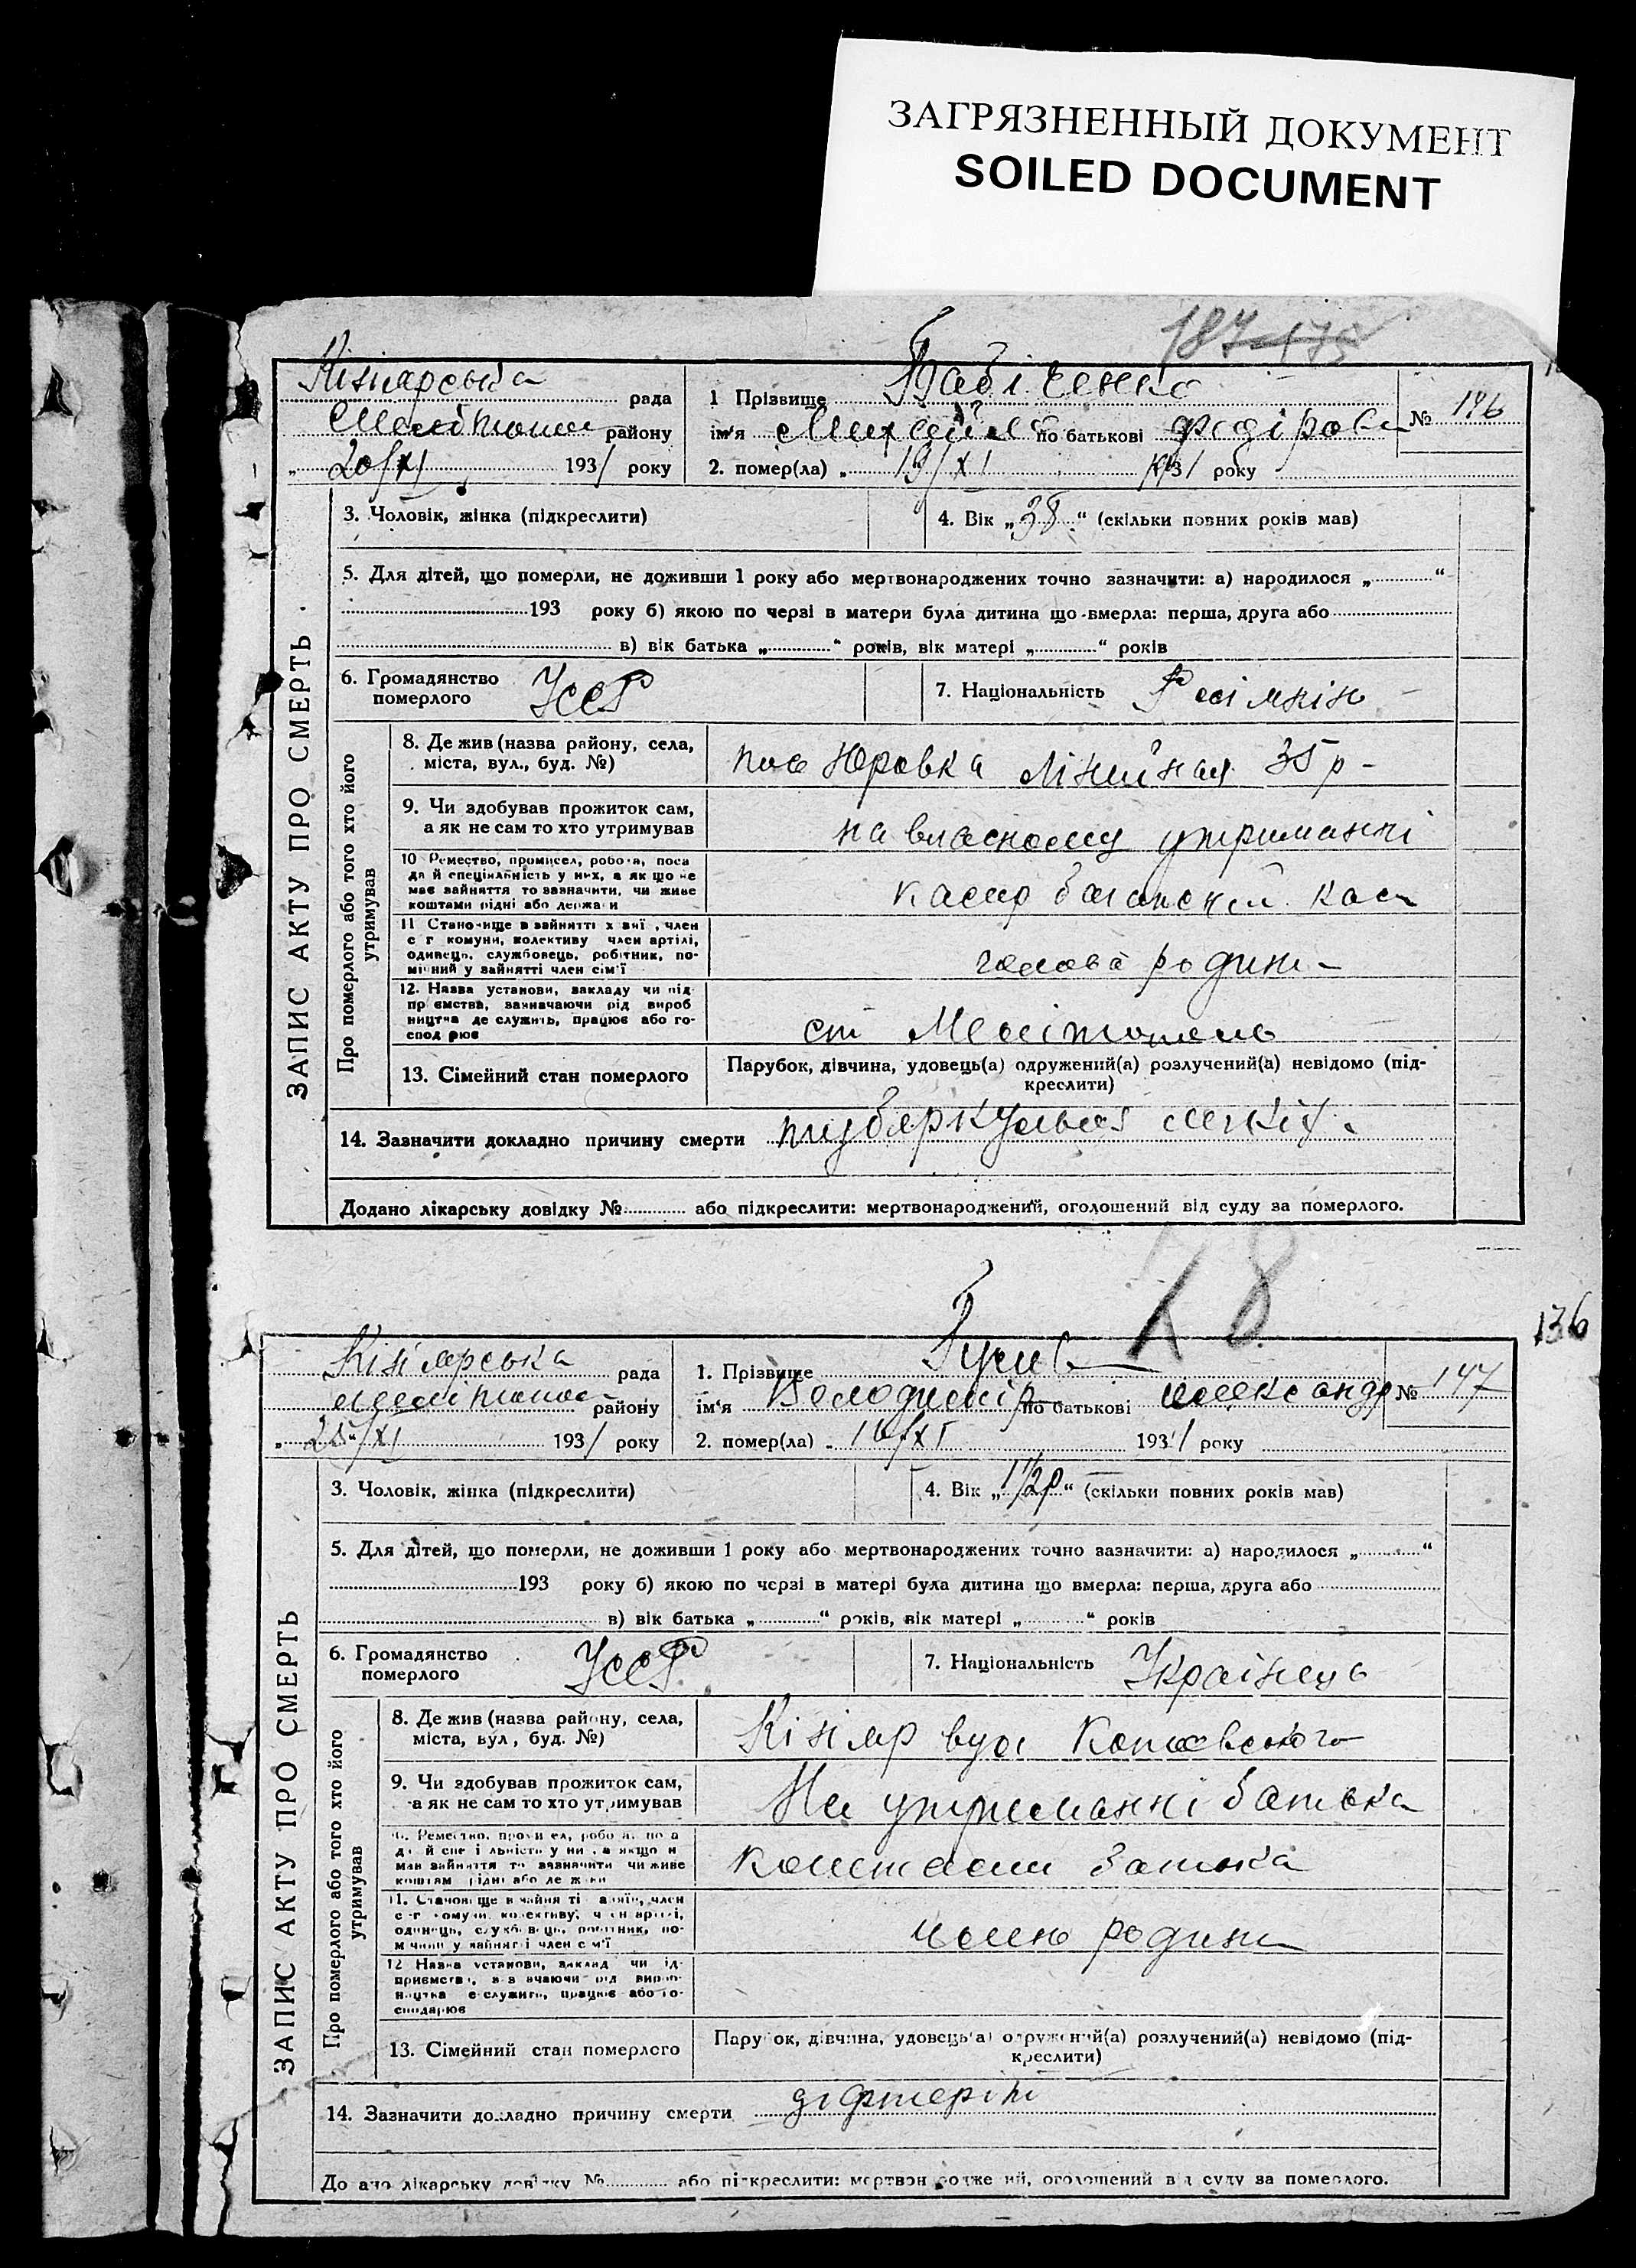 ЗАГРЯЗНЕННЫЙ ДОКУМЕНТ
SOILED DOCUMENT
187
Кізіярська рада
району
20/XI 1931 року
1 Прізвище Бабіченко
ім'я Михайло по батькові Федірови
2. помер(ла) „ 19/XI 1931 року
№ 146
ЗАПИС АКТУ ПРО СМЕРТЬ
3. Чоловік, жінка (підкреслити)
4. Вік „38“ (скільки повних років мав)
5. Для дітей, що померли, не доживши 1 року або мертвонароджених точно зазначити: а) народилося „ “
193 року б) якою по черзі в матери була дитина що вмерла: перша, друга або
в) вік батька „ “ років, вік матері „ “ років
6. Громадянство померлого УССР
7. Національність
Про померлого або того хто його утримував
8. Де жив (назва району, села,
міста, вул., буд. №)
пос Юровка Лінийная 35 р
9. Чи здобував прожиток сам,
а як не сам то хто утримував
на власному утриманні
10 Ремество, промисел, робота, поса
да й спеціяльність у них, а як що не
має зайняття то зазначити, чи живе
коштами рідні або держави
касир багажной кас
11 Становище в зайнятті х зяї , член
с г комуни, колективу член артілі,
одинець, службовець, робітник, по-
мічний у зайнятті член сім'ї
голова родини
12. Назва установи, закладу чи під
приємства, зазначаючи рід вироб
ництва де служить, працює або го-
спод рює
ст Мелітополь
13. Сімейний стан померлого
Парубок, дівчина, удовець(а) одружений(а) розлучений(а) невідомо (під-
креслити)
14. Зазначити докладно причину смерти туберкульоз легкіх
Додано лікарську довідку № або підкреслити: мертвонароджений, оголошений від суду за померлого.
78
136
Кізіярська рада
району
25/XI 1931 року
1. Прізвище
ім'я Володимір по батькові Олександр
2. помер(ла) 16/XI 1931 року
№ 147
ЗАПИС АКТУ ПРО СМЕРТЬ
3. Чоловік, жінка (підкреслити)
4. Вік „1 1/2 р“ (скільки повних років мав)
5. Для дітей, що померли, не доживши 1 року або мертвонароджених точно зазначити: а) народилося „ “
193 року б) якою по черзі в матері була дитина що вмерла: перша, друга або
в) вік батька „ “ років, вік матері „ “ років
6. Громадянство померлого УССР
7. Національність Українець
Про померлого або того хто його утримував
8. Де жив (назва району, села,
міста, вул, буд. №)
Кізіяр вул
9. Чи здобував прожиток сам,
а як не сам то хто утримував
На утриманні батька
Ремество, робо
зайняття то зазначити чи живе
коштами батька
11. Становище член
с-г комуни, колективу, член артілі,
одинець, службовець, робітник, по-
мічний у зайнятті член сім'ї
член родини
12 Назва установи, заклад чи ід-
приємств
служить, працює або го-
сподарює
13. Сімейний стан померлого
Парубок, дівчина, удовець(а) одружений(а) розлучений(а) невідомо (під-
креслити)
14. Зазначити докладно причину смерти діфтеріт
Додано лікарську довідку № або підкреслити: мертвонароджений, оголошений від суду за померлого.